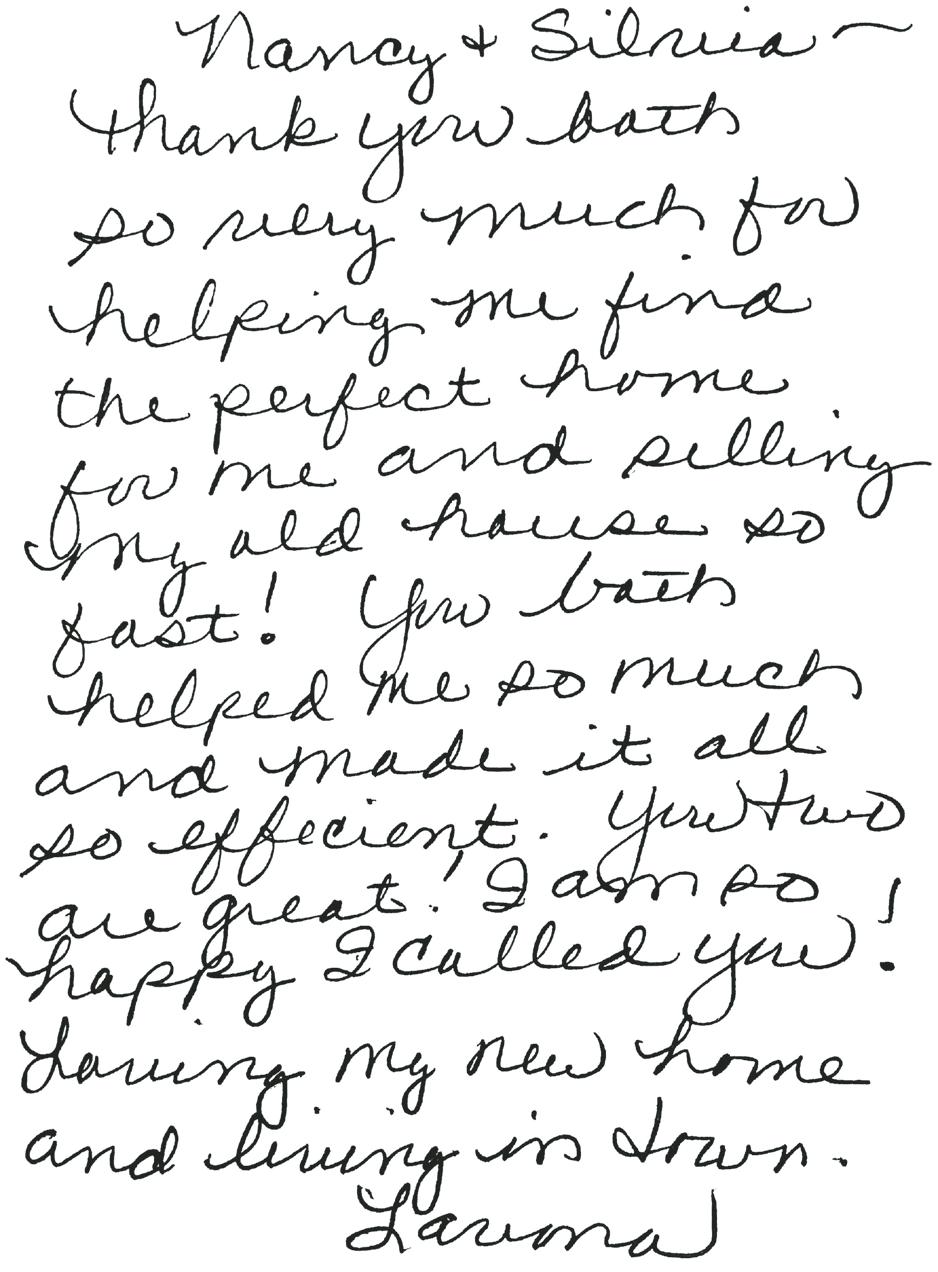 Nancy + Silvia ~
Thank you both
so very much for
helping me find
the perfect home
for me and selling
my old house so
fast! You both
helped me so much
and made it all
so effecient. You two
are great! I am so
happy I called you!
Loving my new home
and living in town.
Lavona